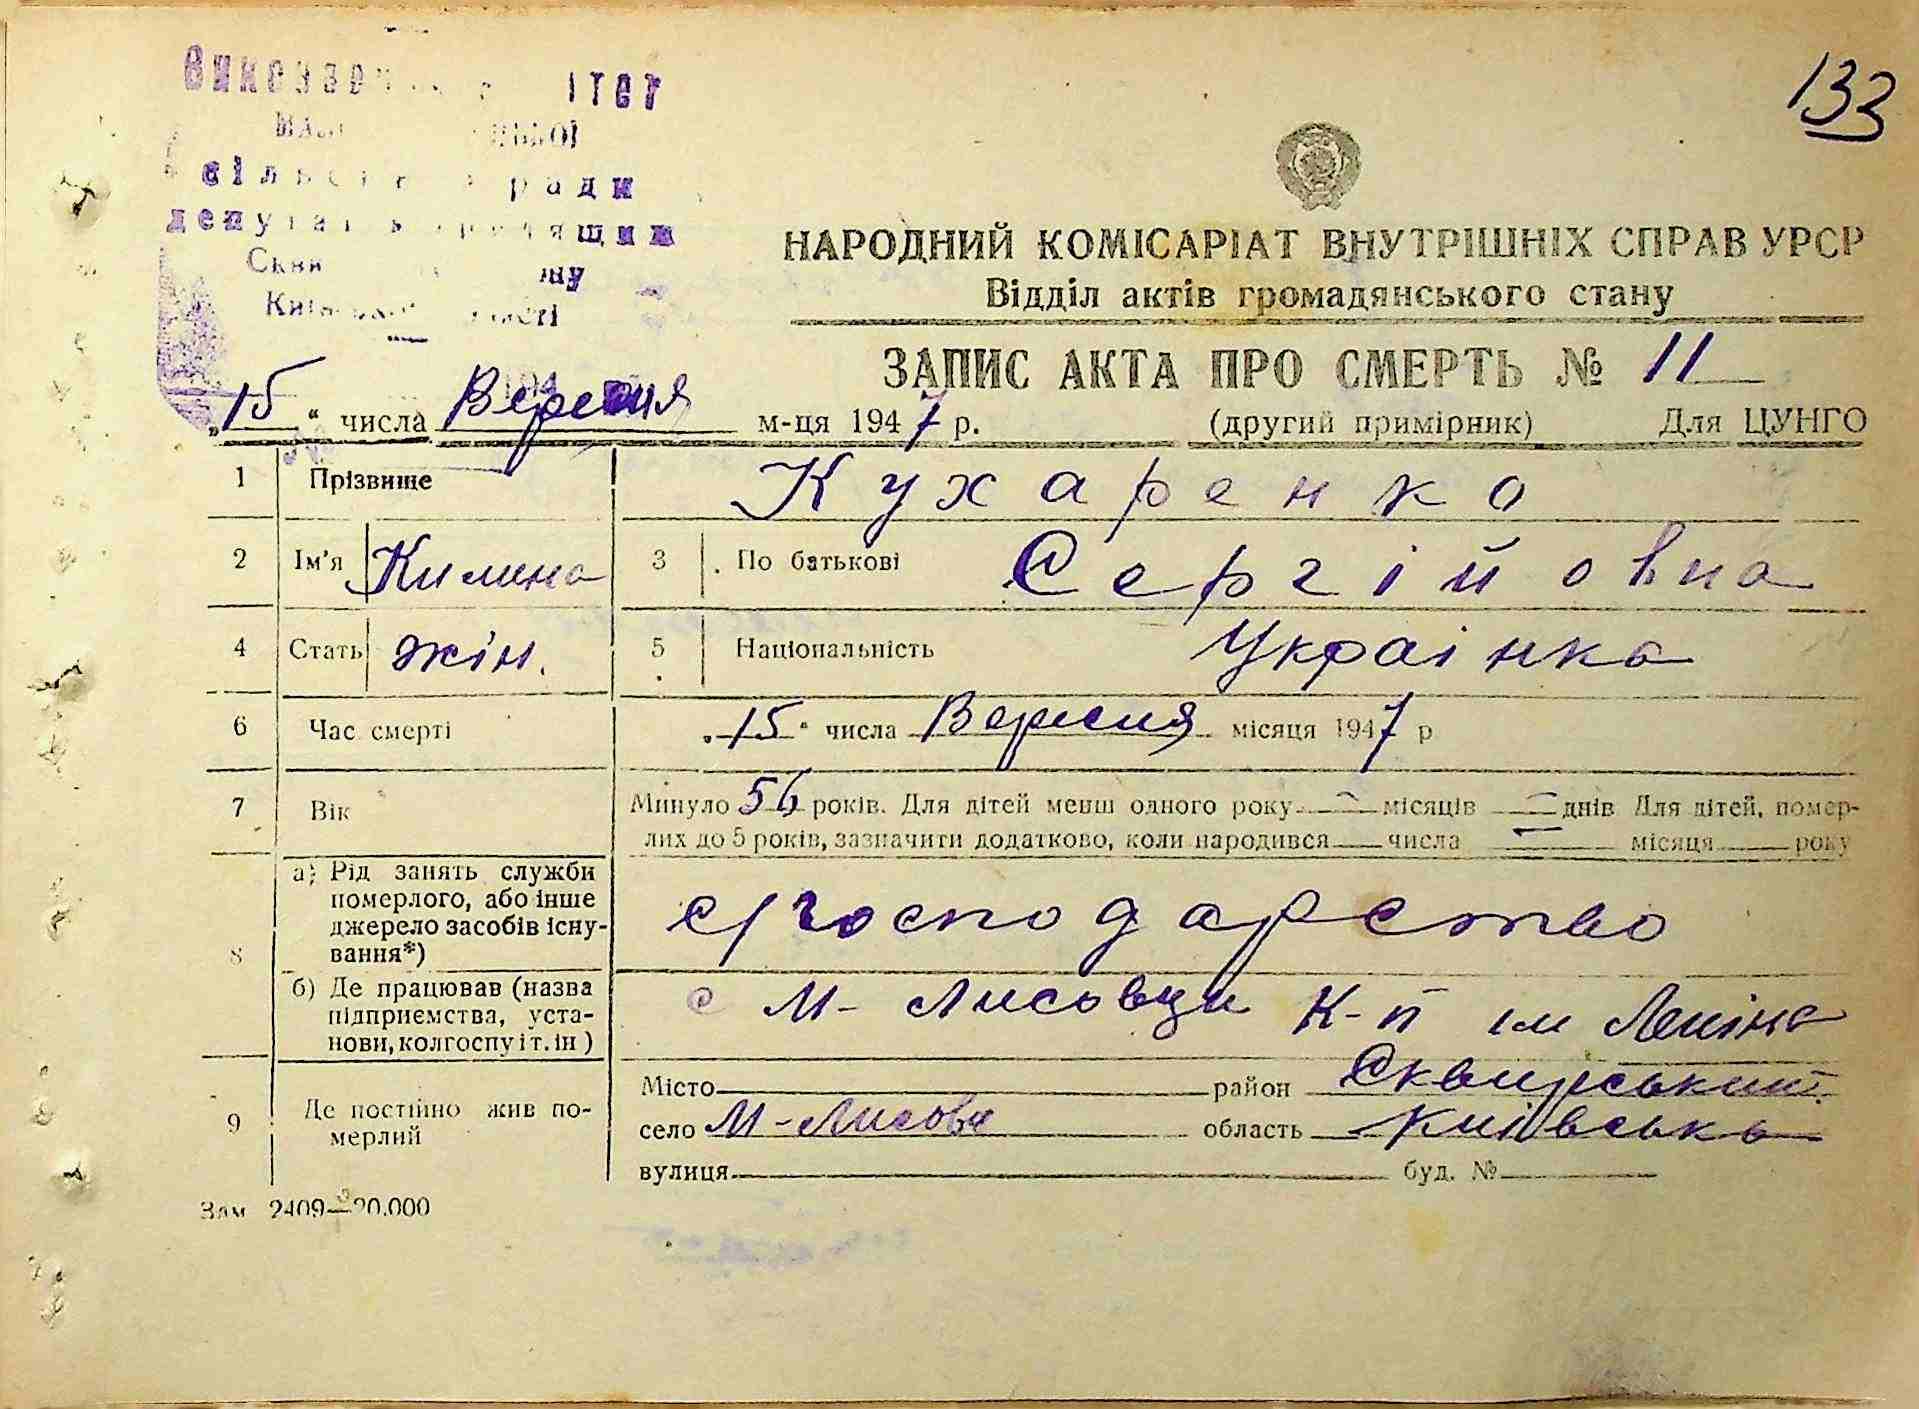 133
сільс ради
депутат трудящих
НАРОДНИЙ КОМІСАРІАТ ВНУТРІШНІХ СПРАВ УРСР
Відділ актів громадянського стану
ЗАПИС АКТА ПРО СМЕРТЬ № 11
„15“ числа Вересня м-ця 1947 р. (другий примірник) Для ЦУНГО
1 Прізвище Кухаренко
2 Ім'я Килина 3 По батькові Сергійовна
4 Стать жін. 5 Національність Украінка
6 Час смерті „15“ числа Вересня місяця 1947 р
7 Вік Минуло 56 років. Для дітей менш одного року — місяців — днів Для дітей, помер-
лих до 5 років, зазначити додатково, коли народився — числа — місяця — року
8 а) Рід занять служби
померлого, або інше
джерело засобів існу-
вання*) с/господарство
б) Де працював (назва
підприємства, уста-
нови, колгоспу і т. ін) с М-Лисовци К-п ім Леніна
9 Де постійно жив по-
мерлий
Місто район Сквирський
село М-Лисовк область Київська
вулиця буд. №
Зам 2409—20.000